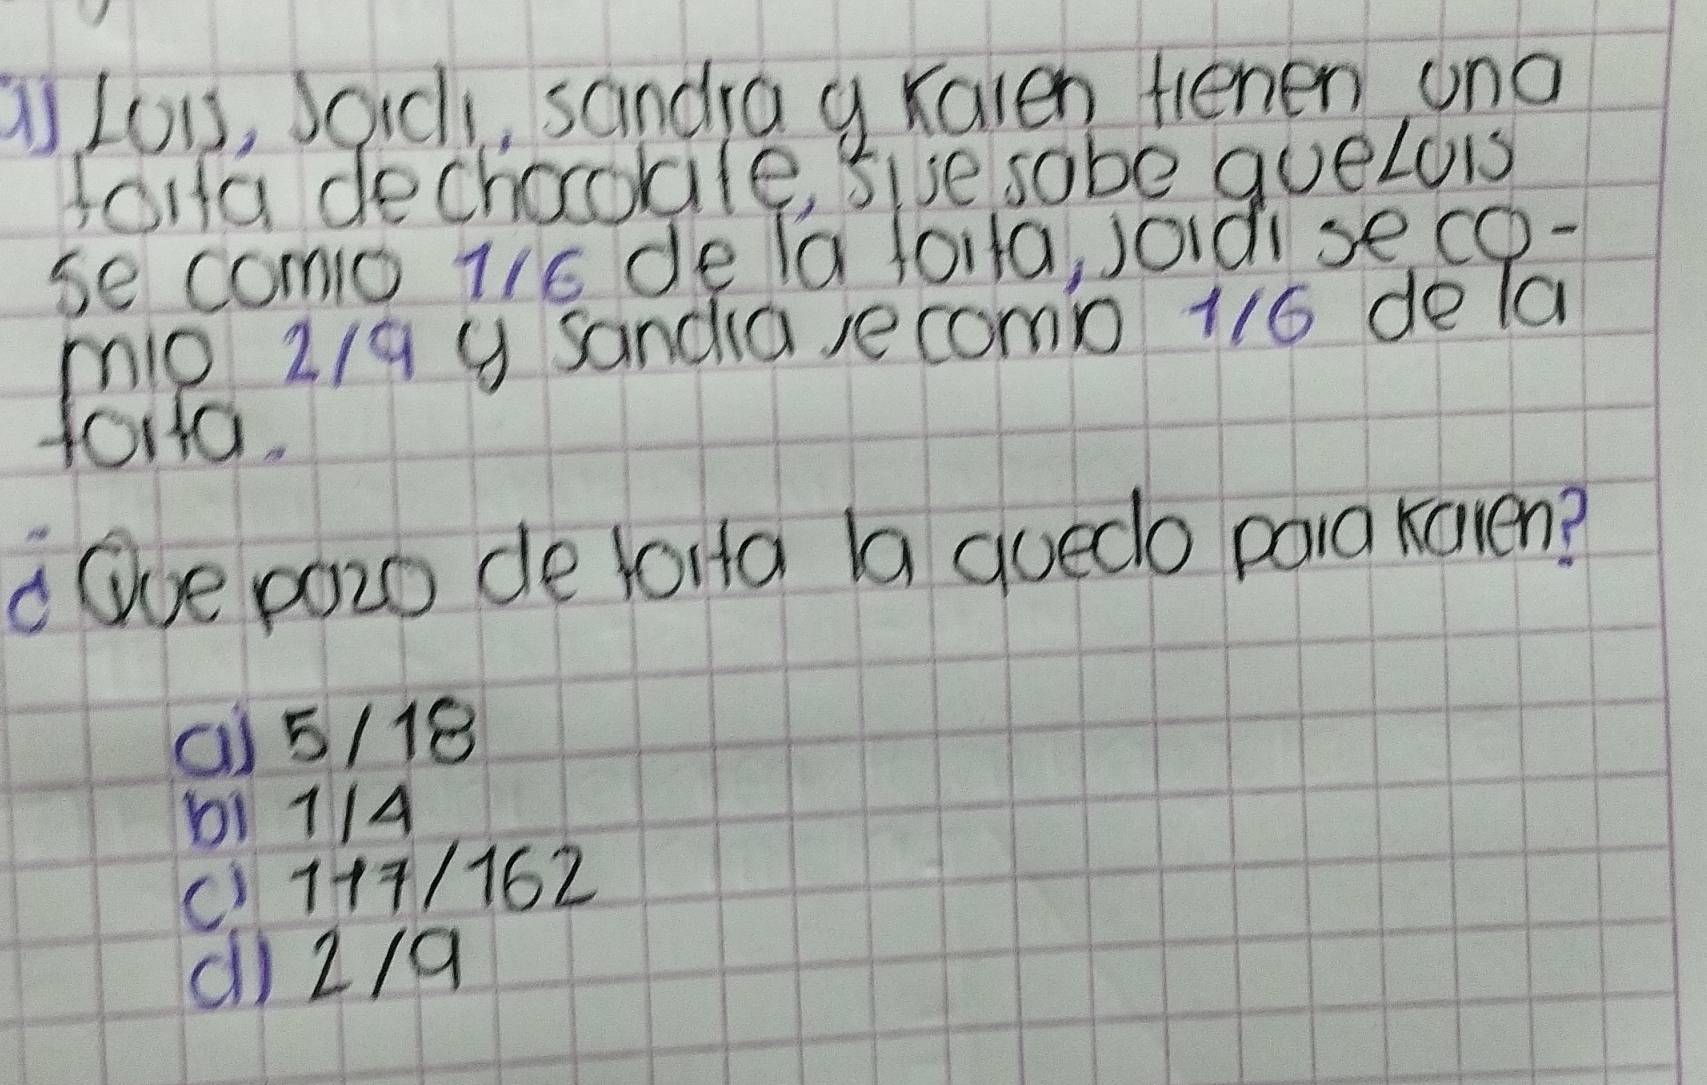 a) Luis, Jordi, sandra y Karen tienen una
torta de chocolate, si se sabe que Luis
se comio 1/6 de la torta, Jordi se co-
mio 2/9 y Sandra se comio 1/6 de la
torta.
¿Que pozo de torta la quedo para Karen?
a) 5/18
b) 1/4
c) 117/162
d) 2/9